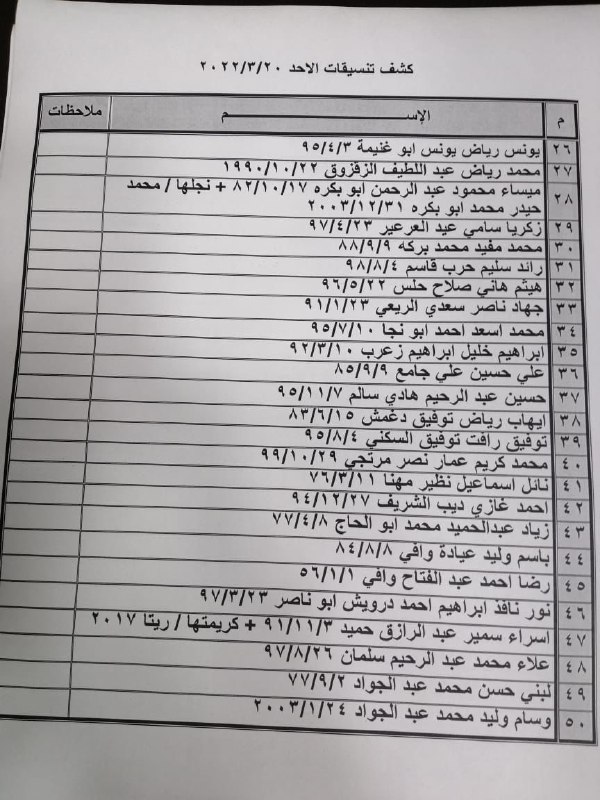 كشف تنسيقات الاحد ٢٠٢٢/٣/٢٠
م الإســـم ملاحظات
٢٦ يونس رياض يونس ابو غنيمة ٩٥/٤/٣
٢٧ محمد رياض عبد اللطيف الزقزوق ١٩٩٠/١٠/٢٢
٢٨ ميساء محمود عبد الرحمن ابو بكره ٨٢/١٠/١٧ + نجلها / محمد
حيدر محمد ابو بكره ٢٠٠٣/١٢/٣١
٢٩ زكريا سامي عيد العرعير ٩٧/٤/٢٣
٣٠ محمد مفيد محمد بركه ٨٨/٩/٩
٣١ رائد سليم حرب قاسم ٩٨/٨/٤
٣٢ هيثم هاني صلاح حلس ٩٦/٥/٢٢
٣٣ جهاد ناصر سعدي الريعي ٩١/١/٢٣
٣٤ محمد اسعد احمد ابو نجا ٩٥/٧/١٠
٣٥ ابراهيم خليل ابراهيم زعرب ٩٢/٣/١٠
٣٦ علي حسين علي جامع ٨٥/٩/٩
٣٧ حسين عبد الرحيم هادي سالم ٩٥/١١/٧
٣٨ ايهاب رياض توفيق دغمش ٨٣/٦/١٥
٣٩ توفيق رافت توفيق السكني ٩٥/٨/٤
٤٠ محمد كريم عمار نصر مرتجي ٩٩/١٠/٢٩
٤١ نائل اسماعيل نظير مهنا ٧٦/٣/١١
٤٢ احمد غازي ديب الشريف ٩٤/١٢/٢٧
٤٣ زياد عبدالحميد محمد ابو الحاج ٧٧/٤/٨
٤٤ باسم وليد عيادة وافي ٨٤/٨/٨
٤٥ رضا احمد عبد الفتاح وافي ٥٦/١/١
٤٦ نور نافذ ابراهيم احمد درويش ابو ناصر ٩٧/٣/٢٣
٤٧ اسراء سمير عبد الرازق حميد ٩١/١١/٣ + كريمتها / ريتا ٢٠١٧
٤٨ علاء محمد عبد الرحيم سلمان ٩٧/٨/٢٦
٤٩ لبني حسن محمد عبد الجواد ٧٧/٩/٢
٥٠ وسام وليد محمد عبد الجواد ٢٠٠٣/١/٢٤